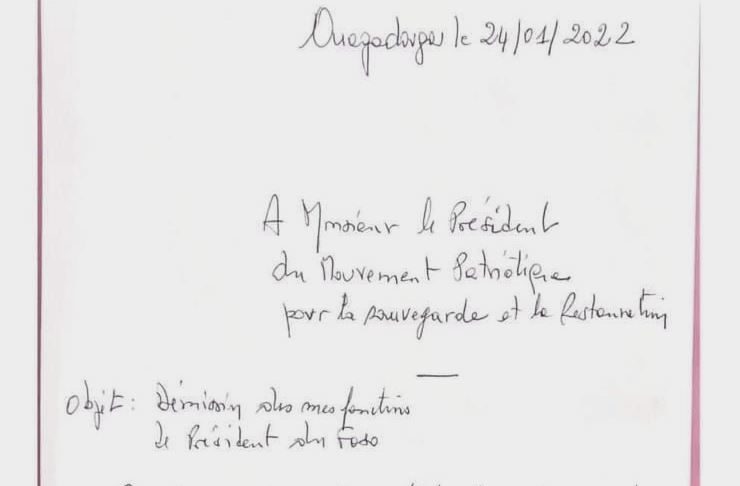 Ouagadougou le 24/01/2022
A Monsieur le Président
du Mouvement Patriotique
pour la sauvegarde et la Restauration
Objet: Démission des mes fonctions
de Président du Faso